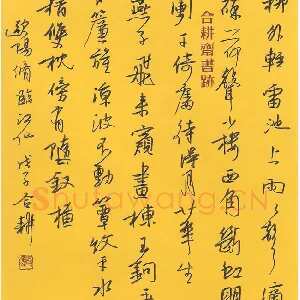 合耕齋書跡
柳外輕雷池上雨々聲滴
碎荷聲小樓西角斷虹明
闌干倚處待得月華生
燕子飛來窺畫棟玉鉤垂
下簾旌涼波不動簟紋平水
精雙枕傍有墮釵橫
歐陽脩臨江仙 戊子合耕
Shufawang.CN